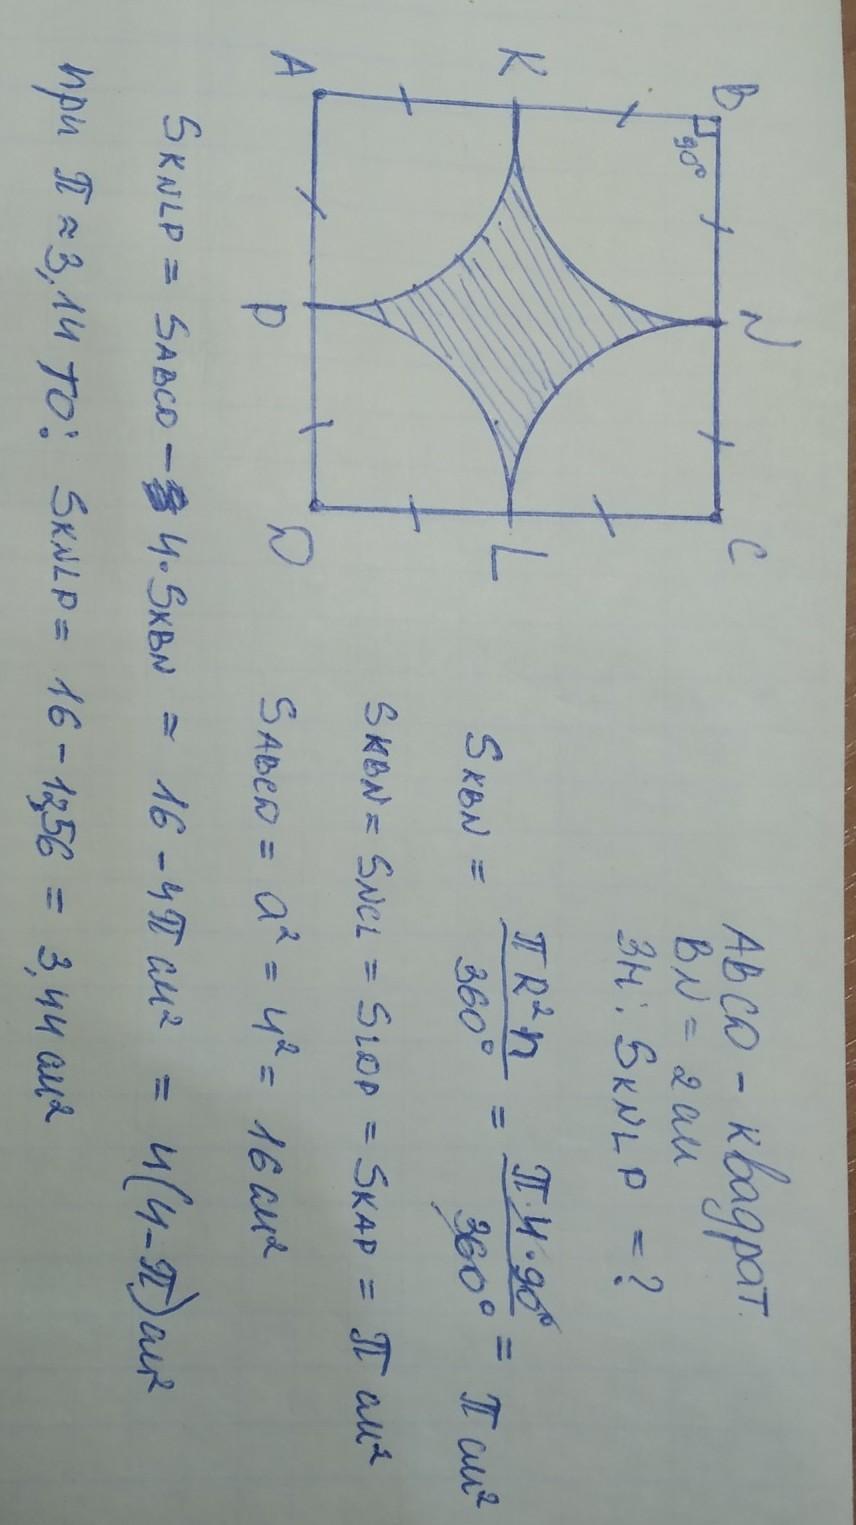 ABCD - квадрат.
BN = 2 см
Зн: SKNLP = ?
B
90°
N
C
K
L
A
P
D
SKBN = πR²n / 360° = π·4·90° / 360° = π см²
SKBN = SNCL = SLDP = SKAP = π см²
SABCD = a² = 4² = 16 см²
SKNLP = SABCD - 4·SKBN = 16 - 4π см² = 4(4-π) см²
при π ≈ 3,14 то: SKNLP = 16 - 12,56 = 3,44 см²